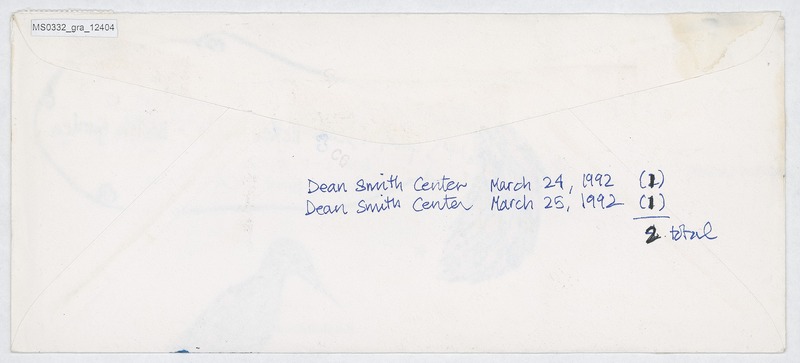 MS0332_gra_12404
Dean Smith Center March 24, 1992 (1)
Dean Smith Center March 25, 1992 (1)
2 total